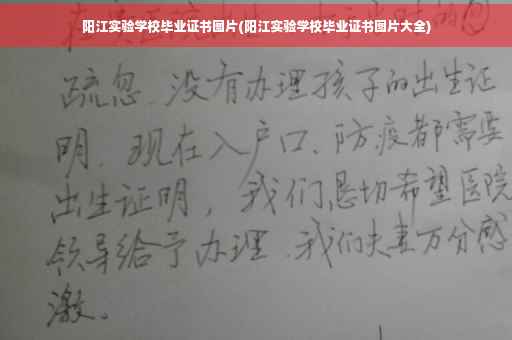 阳江实验学校毕业证书图片(阳江实验学校毕业证书图片大全)
疏忽、没有办理孩子的出生证
明、现在入户口、防疫都需要
出生证明，我们恳切希望医院
领导给予办理、我们夫妻万分感
激。